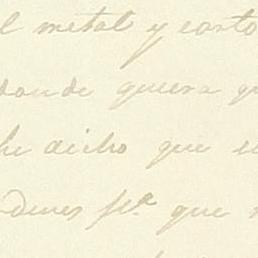 l metal y corto
donde quiera q
he dicho que e
rdenes pª que